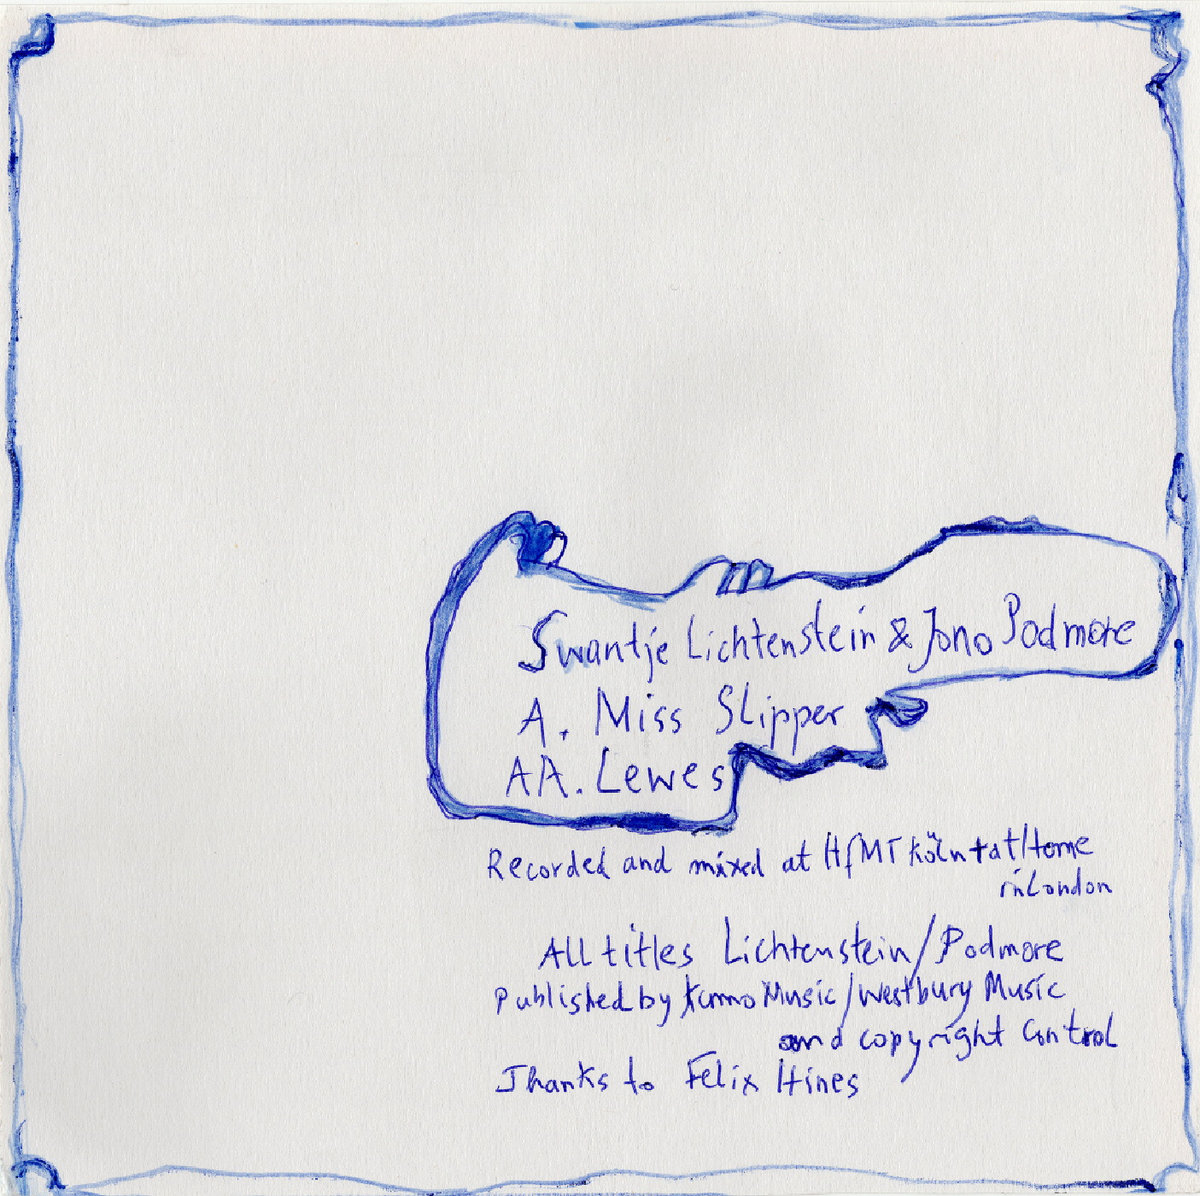 Swantje Lichtenstein & Jono Podmore
A. Miss Slipper
AA. Lewes
Recorded and mixed at HfMT Köln + at Home
in London
All titles Lichtenstein/Podmore
Published by Kumo Music/Westbury Music
and copyright control
Thanks to Felix Hines